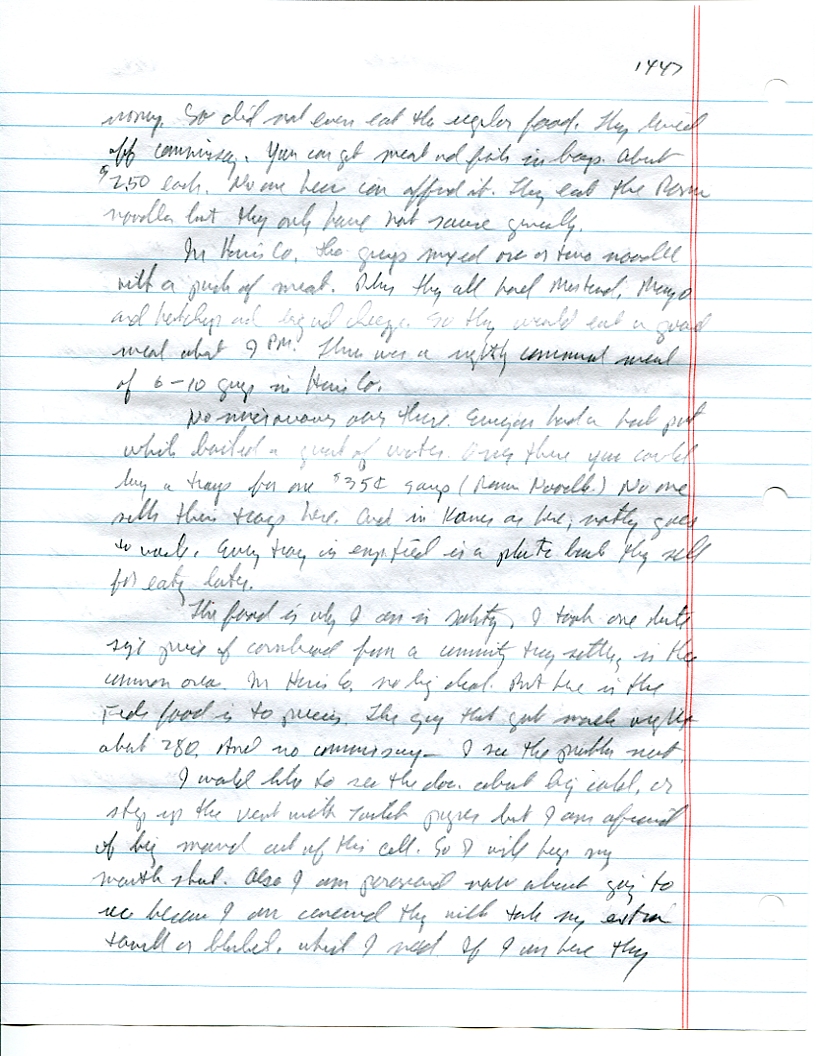 1447
money. So did not even eat the regular food. They lived
off commissary. You can get meat and fish in bags. About
$2.50 each. No one here can afford it. They eat the Ramen
noodles but they only have hot sauce generally.
In Harris Co. the guys mixed one or two noodles
with a pouch of meat. Plus they all had Mustard, Mayo
and ketchup and liquid cheese. So they would eat a good
meal about 9 PM. There was a nightly communal meal
of 6-10 guys in Harris Co.
No microwaves over there. Everyone had a hot pot
which boiled a quart of water. Over there you could
buy a trays for one $35¢ soup (Ramen Noodle.) No one
sells their trays here. And in Harris as here, nothing goes
to waste. Every tray is emptied in a plate bowl they sell
for eating later.
The food is why I am in safety. I took one
size piece of cornbread from a community tray setting in the
common area. In Harris Co. no big deal. But here in the
Feds food is to precious. The guy that got weighs
about 280. And no commissary - I see the problem next.
I would like to see the doc. about being cold, or
stop up the vent with toilet paper but I am afraid
of being moved out of this cell. So I will keep my
mouth shut. Also I am paranoid now about going to
rec because I am concerned they will take my extra
towel or blanket, which I need. If I am here they